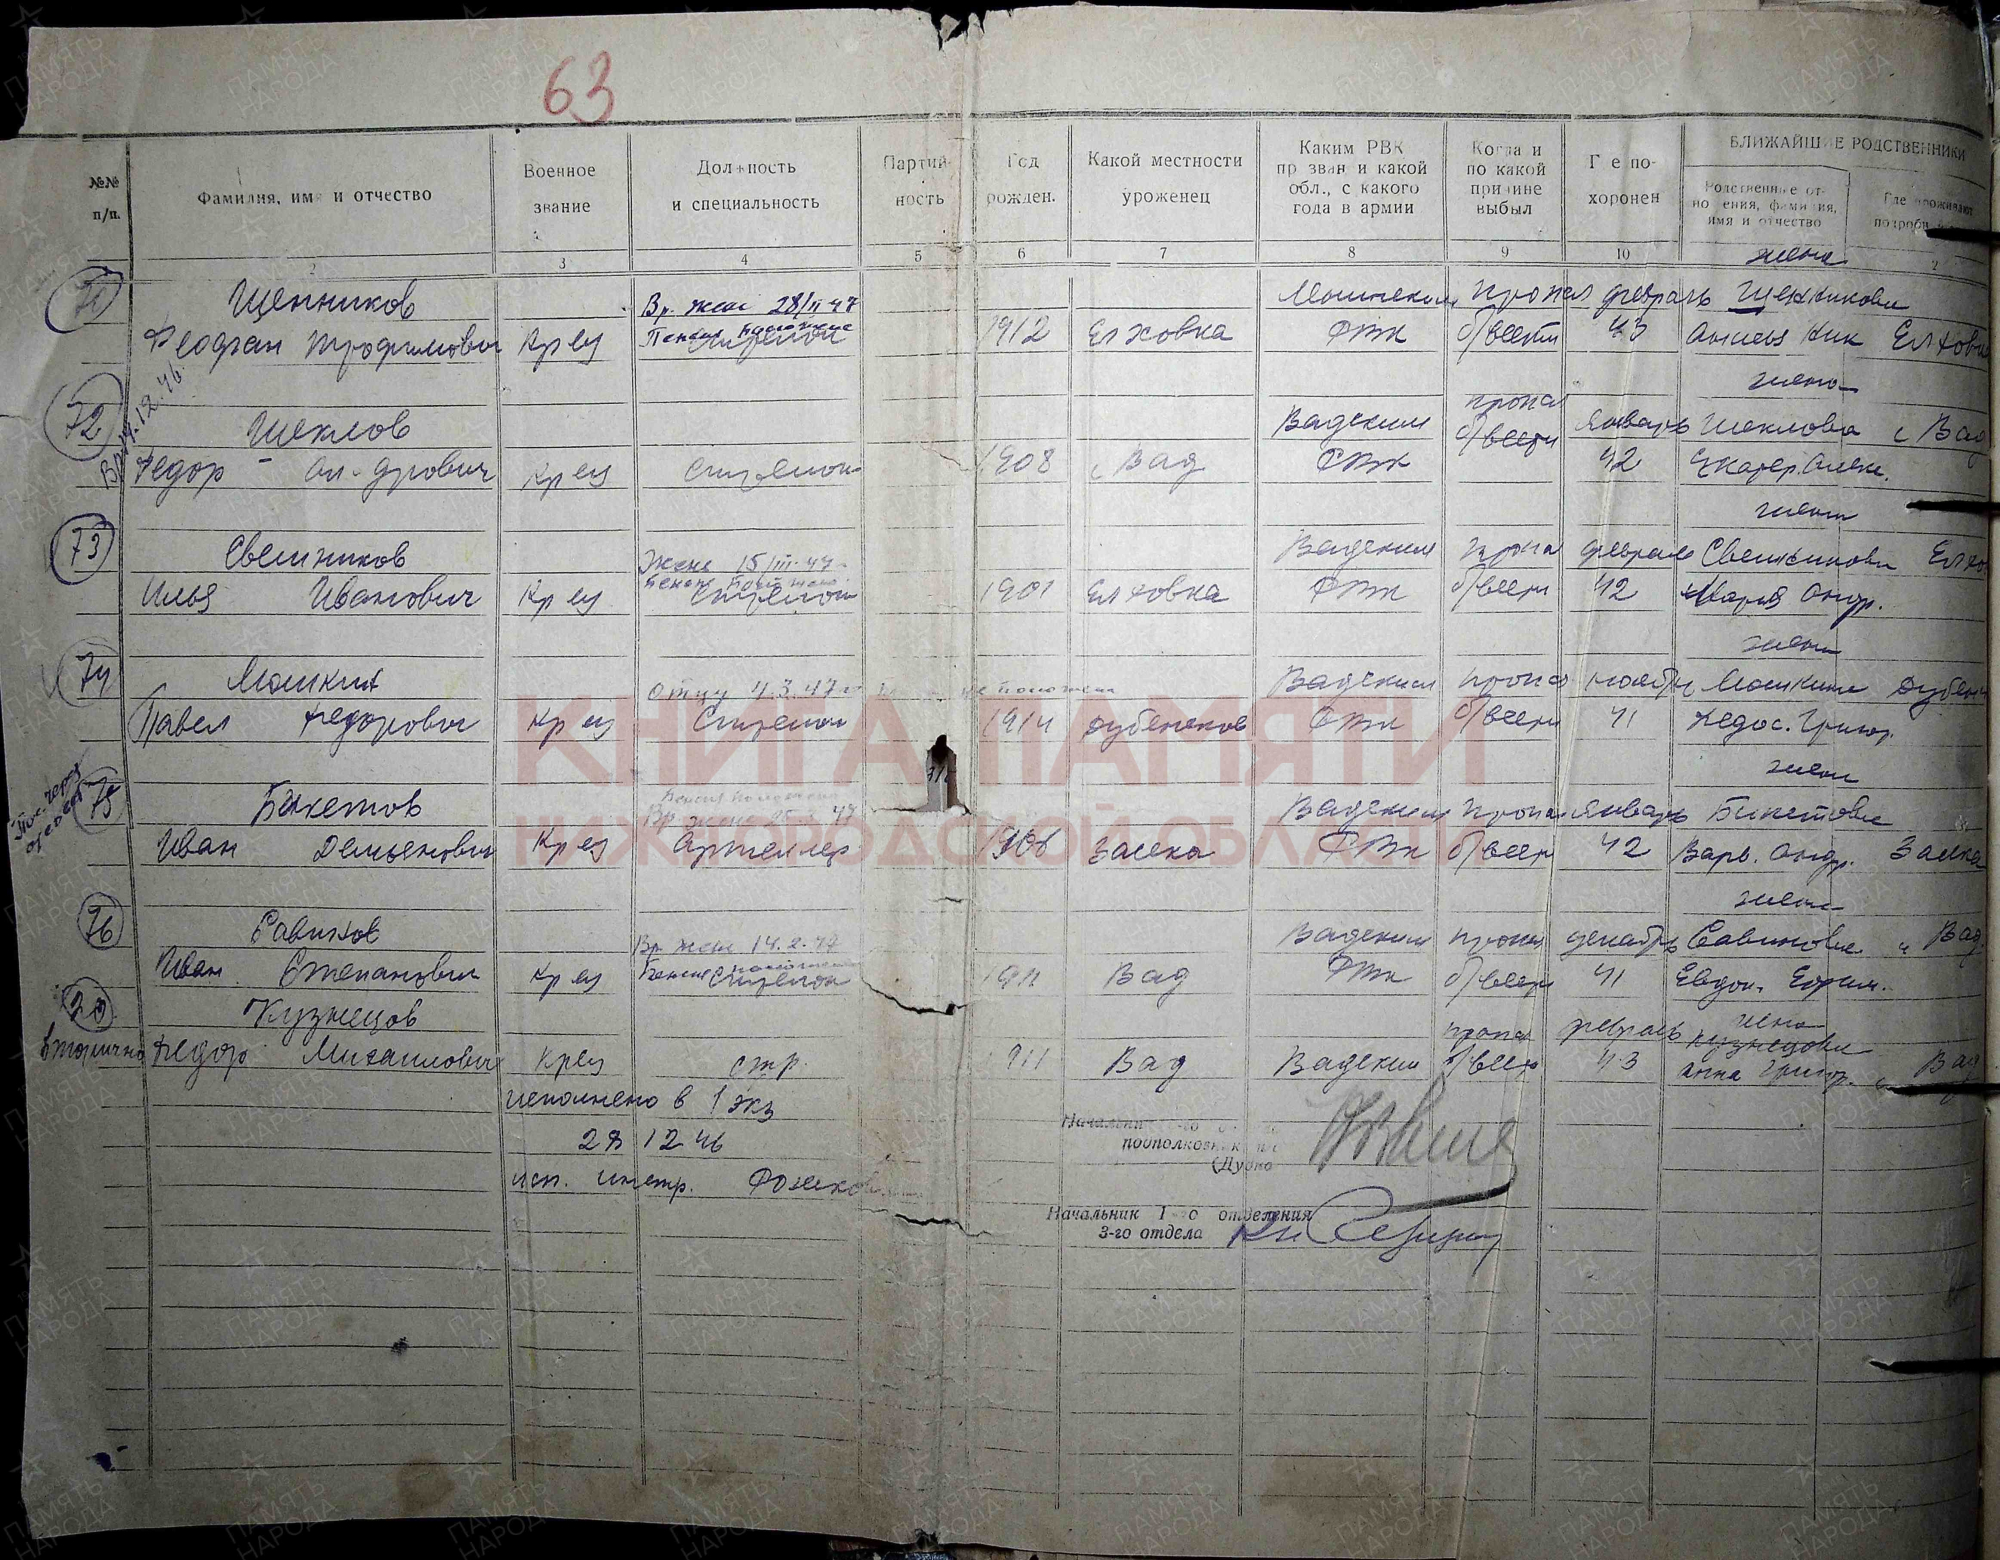 63
№№ п/п.
Фамилия, имя и отчество
Военное звание
Должность и специальность
Партийность
Год рожден.
Какой местности уроженец
Каким РВК призван и какой обл., с какого года в армии
Когда и по какой причине выбыл
Где похоронен
БЛИЖАЙШИЕ РОДСТВЕННИКИ
Родственные отношения, фамилия, имя и отчество
Где проживают
2 3 4 5 6 7 8 9 10
жена
71 Щенников Вр. жене 28/II 47 пропал февраль Щенникова
Феофан Трофимович Кр-ец Пенсия Стрелок 1912 Елховка РВК б/вести 43 Елховка
жена
72 Шеклов Вадским пропал январь Шеклова с Вад
Вр 17.12.46
Федор Ал-дрович Кр-ец Стрелок 1908 с Вад РВК б/вести 42 Екатер. Алек.
жена
73 Свешников Жене 15/III-47 Вадским пропал февраль Свешникова
Илья Иванович Кр-ец Стрелок 1901 Елховка РВК б/вести 42 Мария Андр.
жена
74 Мошкин Отцу 4.3.47 не положена Вадским пропал ноябрь Мошкина
Павел Федорович Кр-ец Стрелок 1914 Дубенское РВК б/вести 41 Федос. Григор.
жена
75 Бикетов Пенсия положена Вр жене 47 Вадским пропал январь Бикетова
Иван Демьянович Кр-ец Артиллер 1906 Заска РВК б/вести 42 Варв. Андр. Заска
жена
76 Савинов Вр жене 14.2.47 Вадским пропал декабрь Савинова с Вад
Иван Степанович Кр-ец Пенсия положена Стрелок 1911 Вад РВК б/вести 41 Евдок. Ефим.
20 Кузнецов пропал февраль жена Кузнецова
вторично Федор Михайлович Кр-ец стр. 1911 Вад Вадским б/вести 43 Анна Григор. с Вад
исполнено в 1 экз
28 12 46
исп. инстр.
Начальник
подполковник
Начальник 1-го отделения
3-го отдела
КНИГА ПАМЯТИ
НИЖЕГОРОДСКОЙ ОБЛАСТИ
ПАМЯТЬ НАРОДА